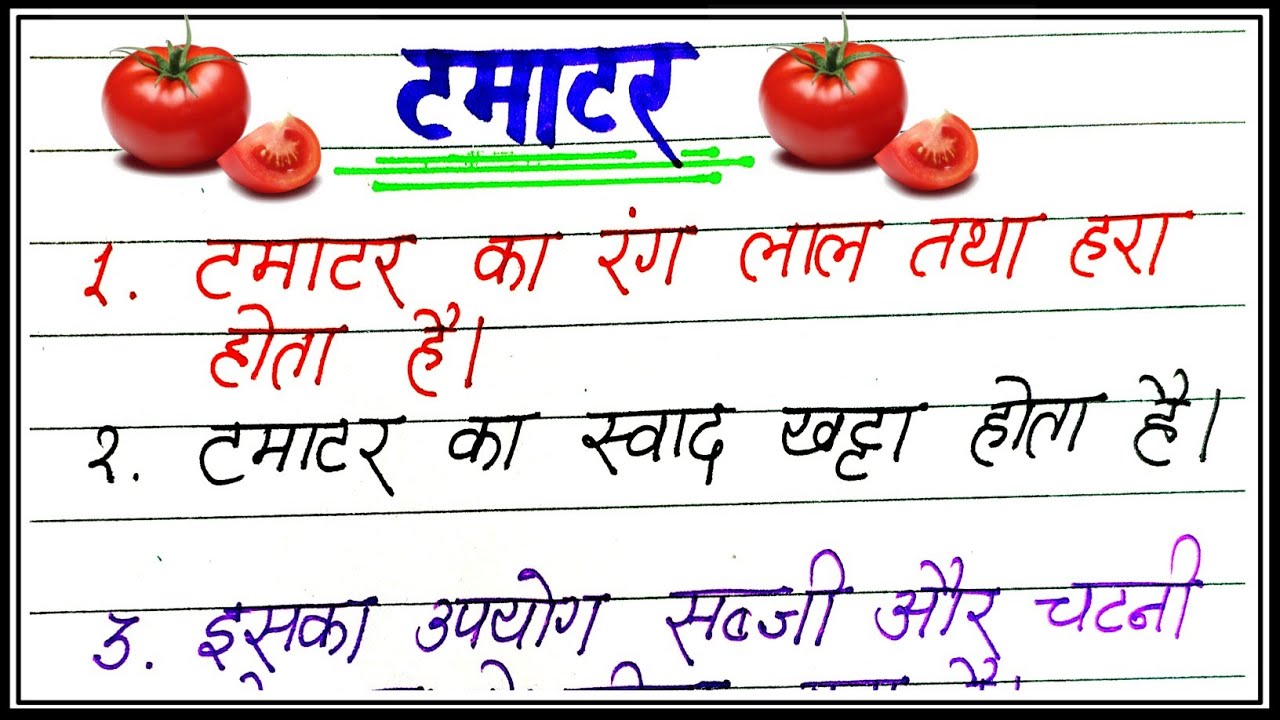 टमाटर
१. टमाटर का रंग लाल तथा हरा
होता है।
२. टमाटर का स्वाद खट्टा होता है।
३. इसका उपयोग सब्जी और चटनी